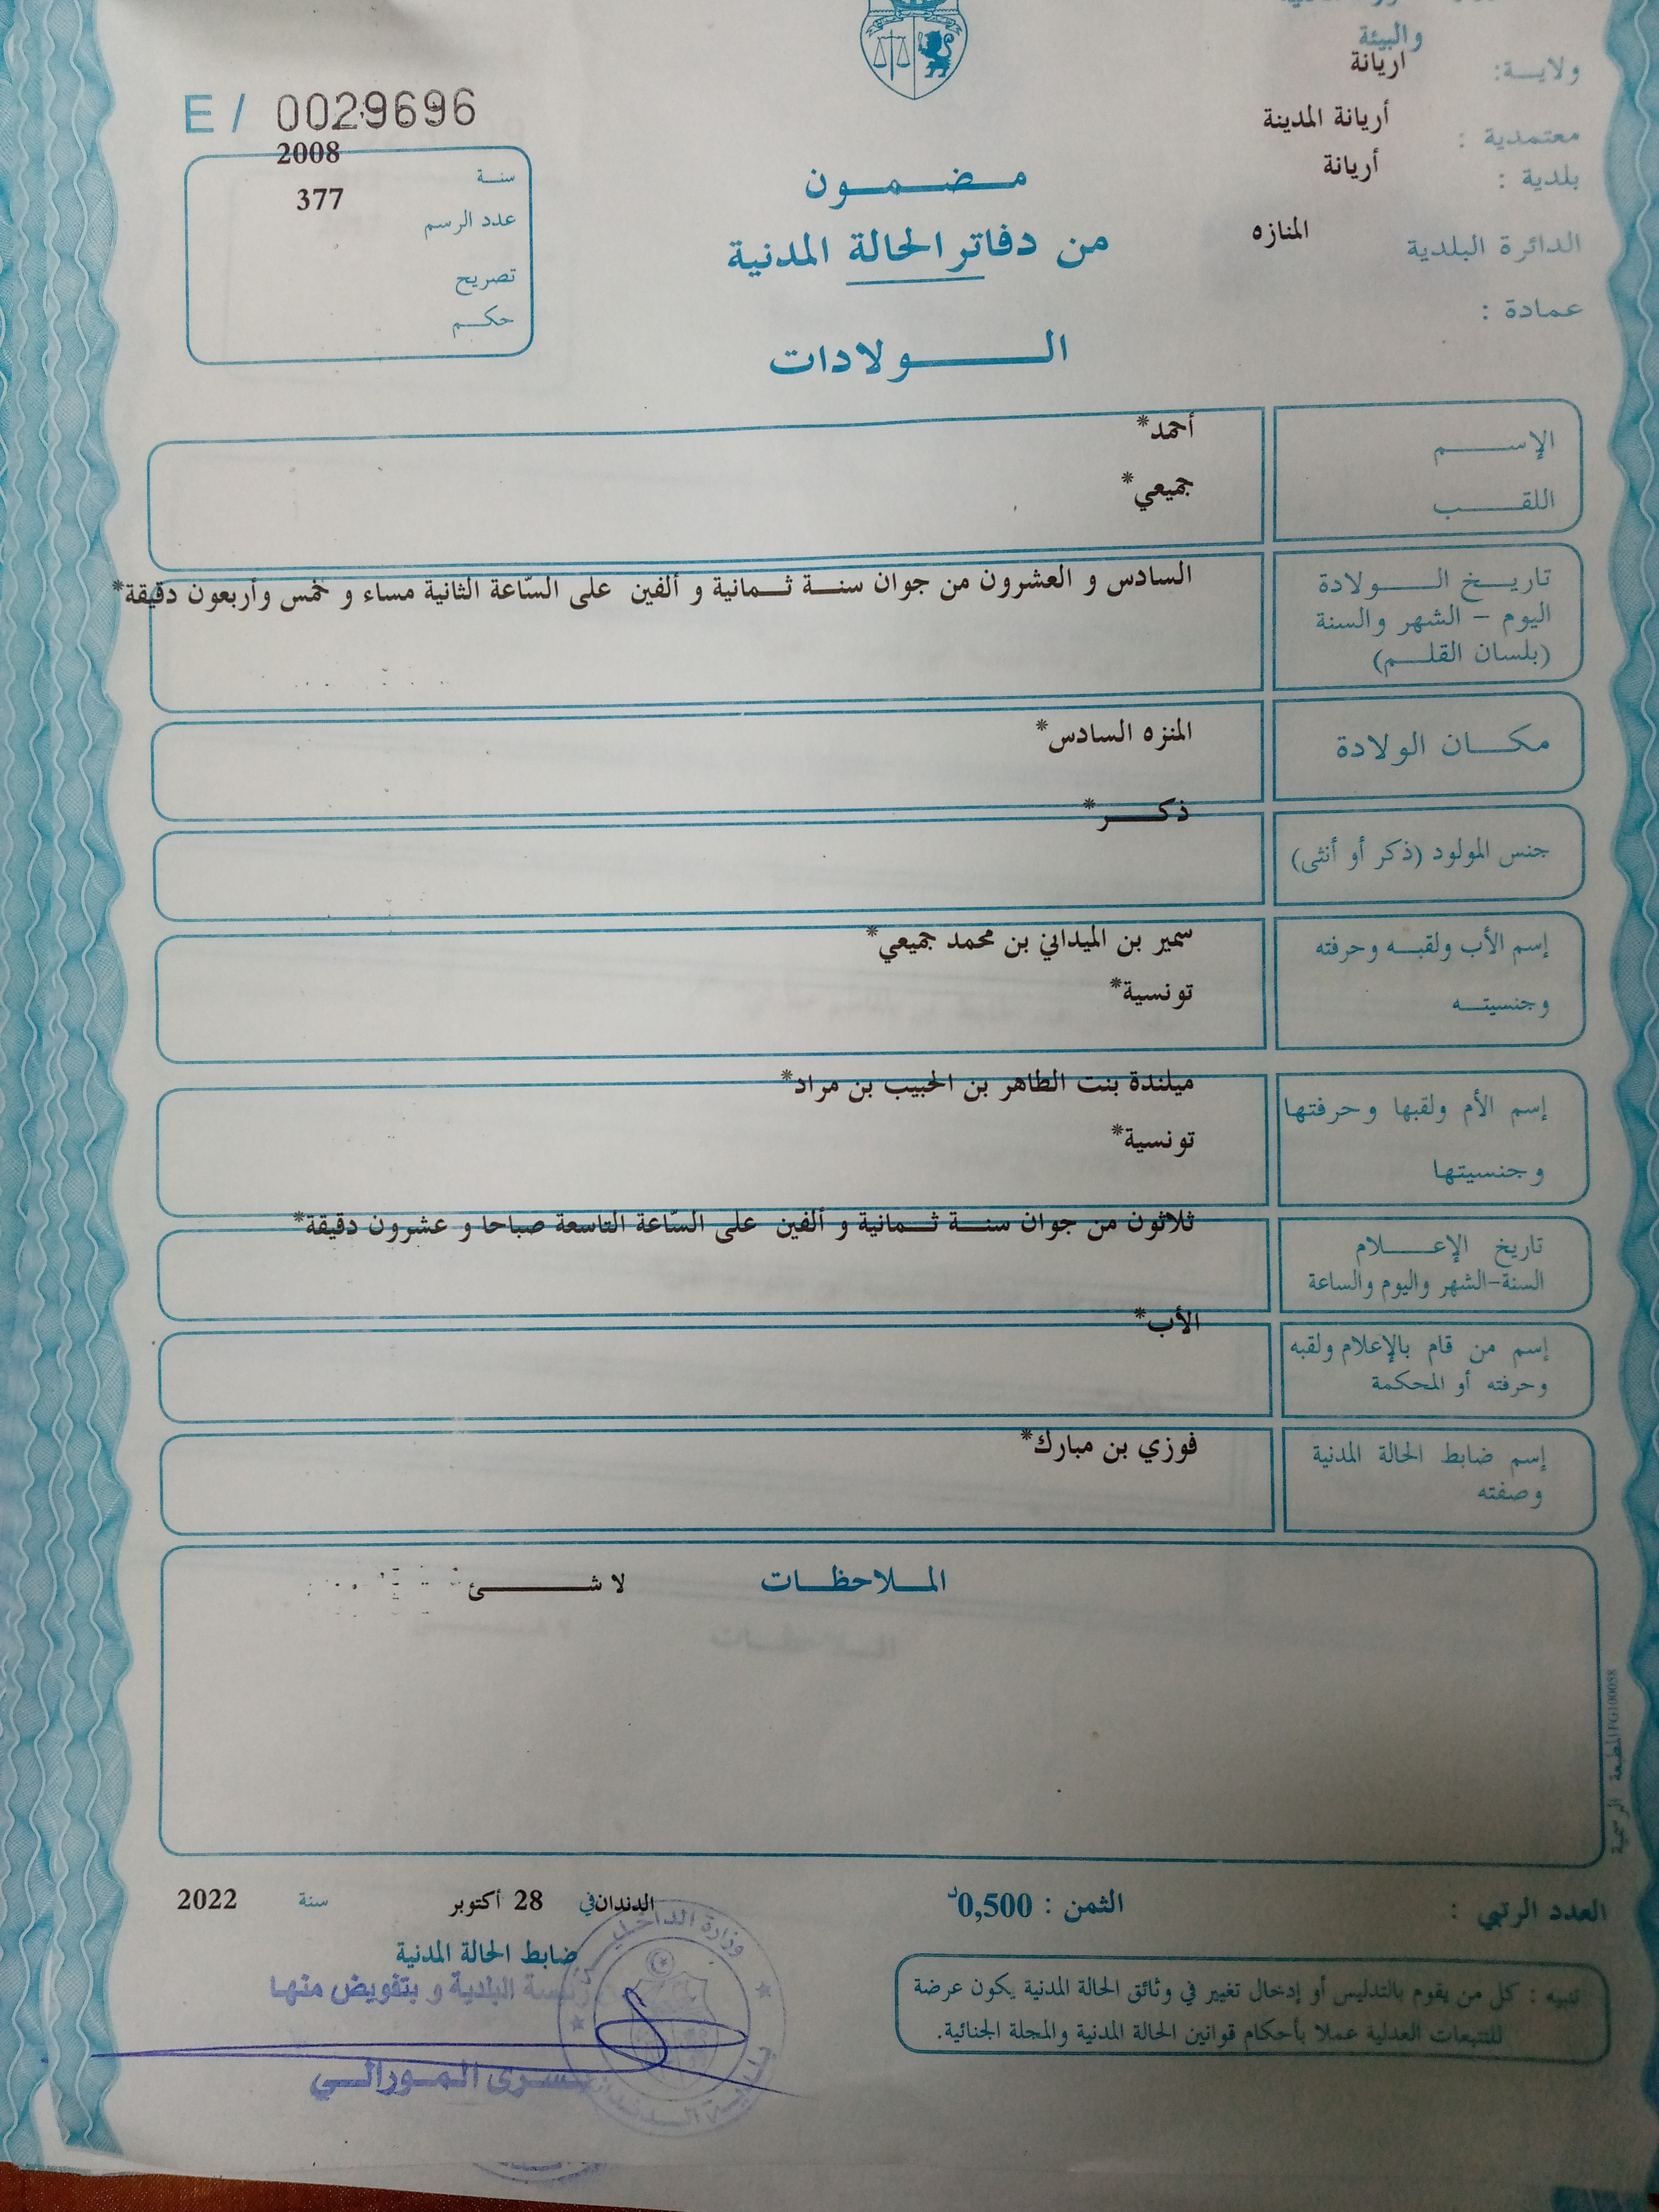 والبيئة
ولايـــة: اريانة
معتمدية : أريانة المدينة
بلدية : أريانة
الدائرة البلدية المنازه
عمادة :
E / 0029696
سنــة 2008
عدد الرسم 377
تصريح
حكــم
مــضــمــون
من دفاتر الحالة المدنية
الــــولادات
الإســــم أحمد*
اللقــــب جميعي*
تاريـــخ الـــــولادة
اليوم – الشهر والسنة
(بلسان القلــم)
السادس و العشرون من جوان سنـــة ثـــمانية و ألفين على السّاعة الثانية مساء و خمس وأربعون دقيقة*
مكـــان الولادة المنزه السادس*
جنس المولود (ذكر أو أنثى) ذكـــــر*
إسم الأب ولقبــه وحرفته سمير بن الميداني بن محمد جميعي*
وجنسيتــه تونسية*
إسم الأم ولقبها وحرفتها ميلندة بنت الطاهر بن الحبيب بن مراد*
وجنسيتها تونسية*
تاريخ الإعـــــلام
السنة-الشهر واليوم والساعة
ثلاثون من جوان سنـــة ثـــمانية و ألفين على السّاعة التاسعة صباحا و عشرون دقيقة*
إسم من قام بالإعلام ولقبه
وحرفته أو المحكمة
الأب*
إسم ضابط الحالة المدنية
وصفته
فوزي بن مبارك*
المــلاحظــات
لا شـــــــئ
المطبعة الرسمية
العدد الرتبي :
الثمن : 0,500د
الدندان في 28 أكتوبر سنة 2022
ضابط الحالة المدنية
رئيسة البلدية و بتفويض منهـا
يـسـرى الـمـورالـي
وزارة الداخلية
بلدية الدندان
تنبيه : كل من يقوم بالتدليس أو إدخال تغيير في وثائق الحالة المدنية يكون عرضة
للتتبعات العدلية عملا بأحكام قوانين الحالة المدنية والمجلة الجنائية.